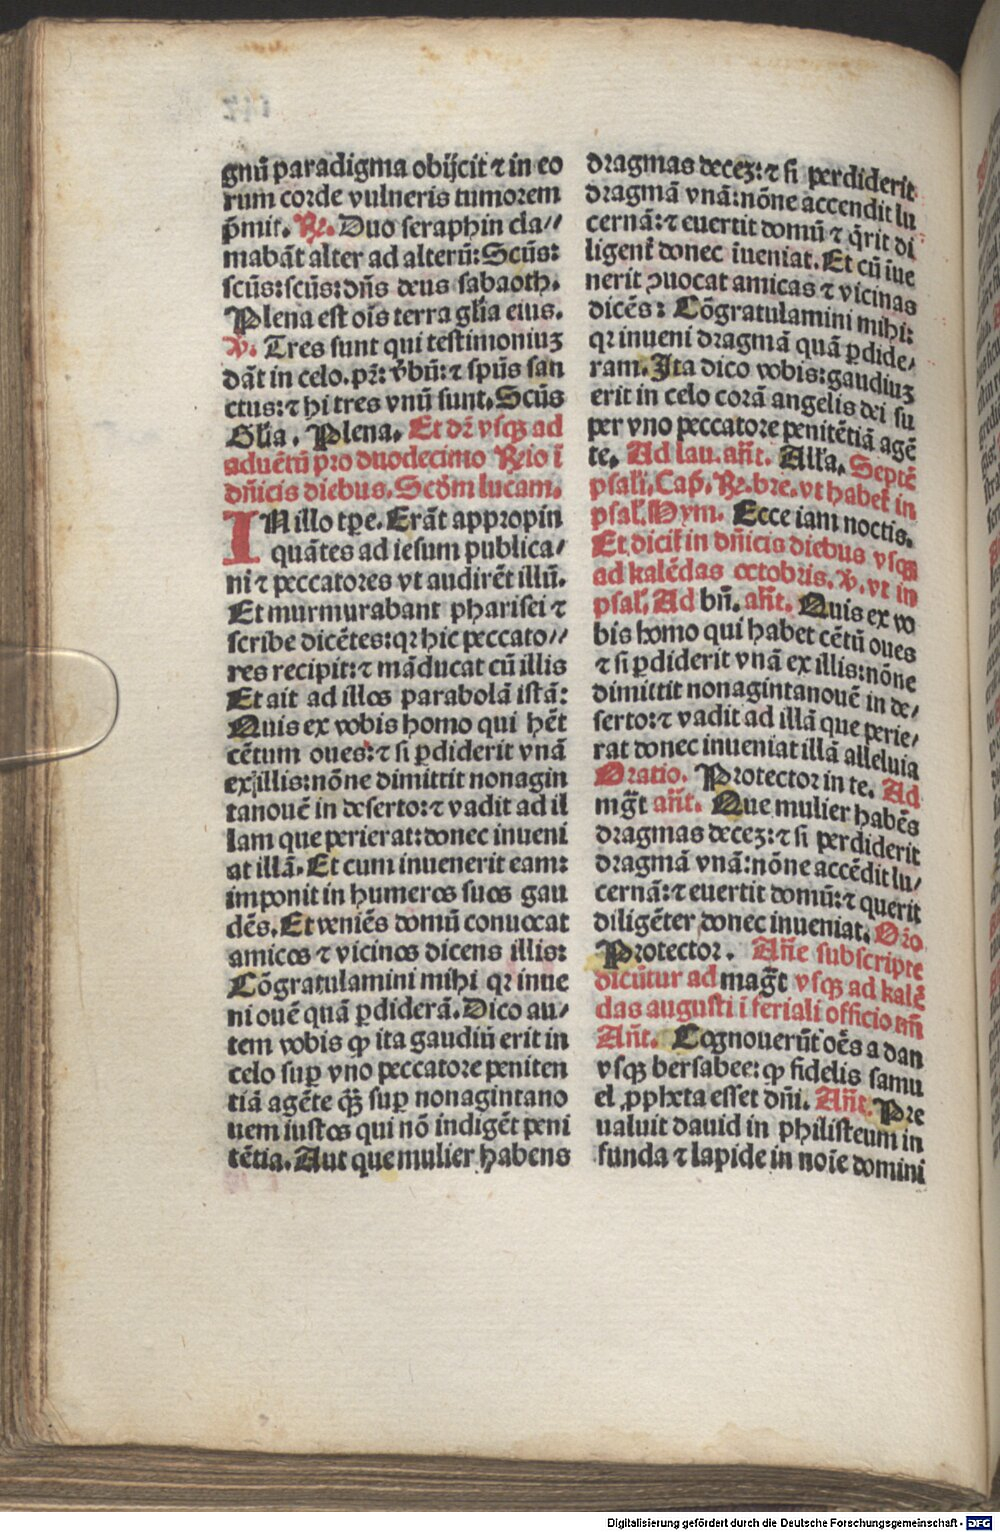 gnū paradigma obijcit ⁊ in eo
rum corde vulneris tumorem
p̄mit. ℟. Duo seraphin cla⸗
mabāt alter ad alterū: Scūs:
scūs: scūs: dn̄s deus sabaoth.
Plena est oīs terra gl̄ia eius.
℣. Tres sunt qui testimoniuꝫ
dāt in celo. pr̄: v̄bū: ⁊ spūs san
ctus: ⁊ hi tres vnū sunt. Scūs
Gl̄ia. Plena. Et dr̄ vsqꝫ ad
aduētū pro duodecimo ℟io ī
dn̄icis diebus. Scd̄m lucam.
IN illo tp̄e. Erāt appropin
quātes ad iesum publica/
ni ⁊ peccatores vt audirēt illū.
Et murmurabant pharisei ⁊
scribe dicētes: qꝛ hic peccato//
res recipit: ⁊ māducat cū illis
Et ait ad illos parabolā istā:
Quis ex vobis homo qui hēt
cētum oues: ⁊ si ꝑdiderit vnā
ex illis: nōne dimittit nonagin
tanouē in deserto: ⁊ vadit ad il
lam que perierat: donec inueni
at illā. Et cum inuenerit eam:
imponit in humeros suos gau
dēs. Et veniēs domū conuocat
amicos ⁊ vicinos dicens illis:
Cōgratulamini mihi qꝛ inue
ni ouē quā ꝑdiderā. Dico au/
tem vobis ꝙ ita gaudiū erit in
celo suꝑ vno peccatore peniten
tiā agēte qꝫ̄ suꝑ nonagintano
uem iustos qui nō indigēt peni
tētia. Aut que mulier habens
dragmas deceꝫ: ⁊ si perdiderit
dragmā vnā: nōne accendit lu
cernā: ⁊ euertit domū ⁊ q̄rit di
ligent̄ donec īueniat. Et cū īue
nerit ꝯuocat amicas ⁊ vicinas
dicēs: Cōgratulamini mihi:
qꝛ inueni dragmā quā ꝑdide/
ram. Ita dico vobis: gaudiuꝫ
erit in celo corā angelis dei su
per vno peccatore penitētiā agē
te. Ad lau. an̄t. Alla. Septē
psal̄i. Cap̄. ℟. bre. vt habet̄ in
psal̄. Hym. Ecce iam noctis.
Et dicit̄ in dn̄icis diebus vsqꝫ
ad kalēdas octobris. ℣. vt in
psal̄. Ad bn̄. an̄t. Quis ex vo
bis homo qui habet cētū oues
⁊ si ꝑdiderit vnā ex illis: nōne
dimittit nonagintanouē in de/
serto: ⁊ vadit ad illā que perie/
rat donec inueniat illā alleluia
Oratio. Protector in te. Ad
mḡt an̄t. Que mulier habēs
dragmas deceꝫ: ⁊ si perdiderit
dragmā vnā: nōne accēdit lu/
cernā: ⁊ euertit domū: ⁊ querit
diligēter donec inueniat. Or̄o
Protector. An̄e subscripte
dicūtur ad maḡt vsqꝫ ad kalē
das augusti ī feriali officio tm̄
An̄t. Cognouerūt oēs a dan
vsqꝫ bersabee: ꝙ fidelis samu
el ꝓpheta esset dn̄i. An̄t. Pre
ualuit dauid in philisteum in
funda ⁊ lapide in noīe domini
Digitalisierung gefördert durch die Deutsche Forschungsgemeinschaft - DFG